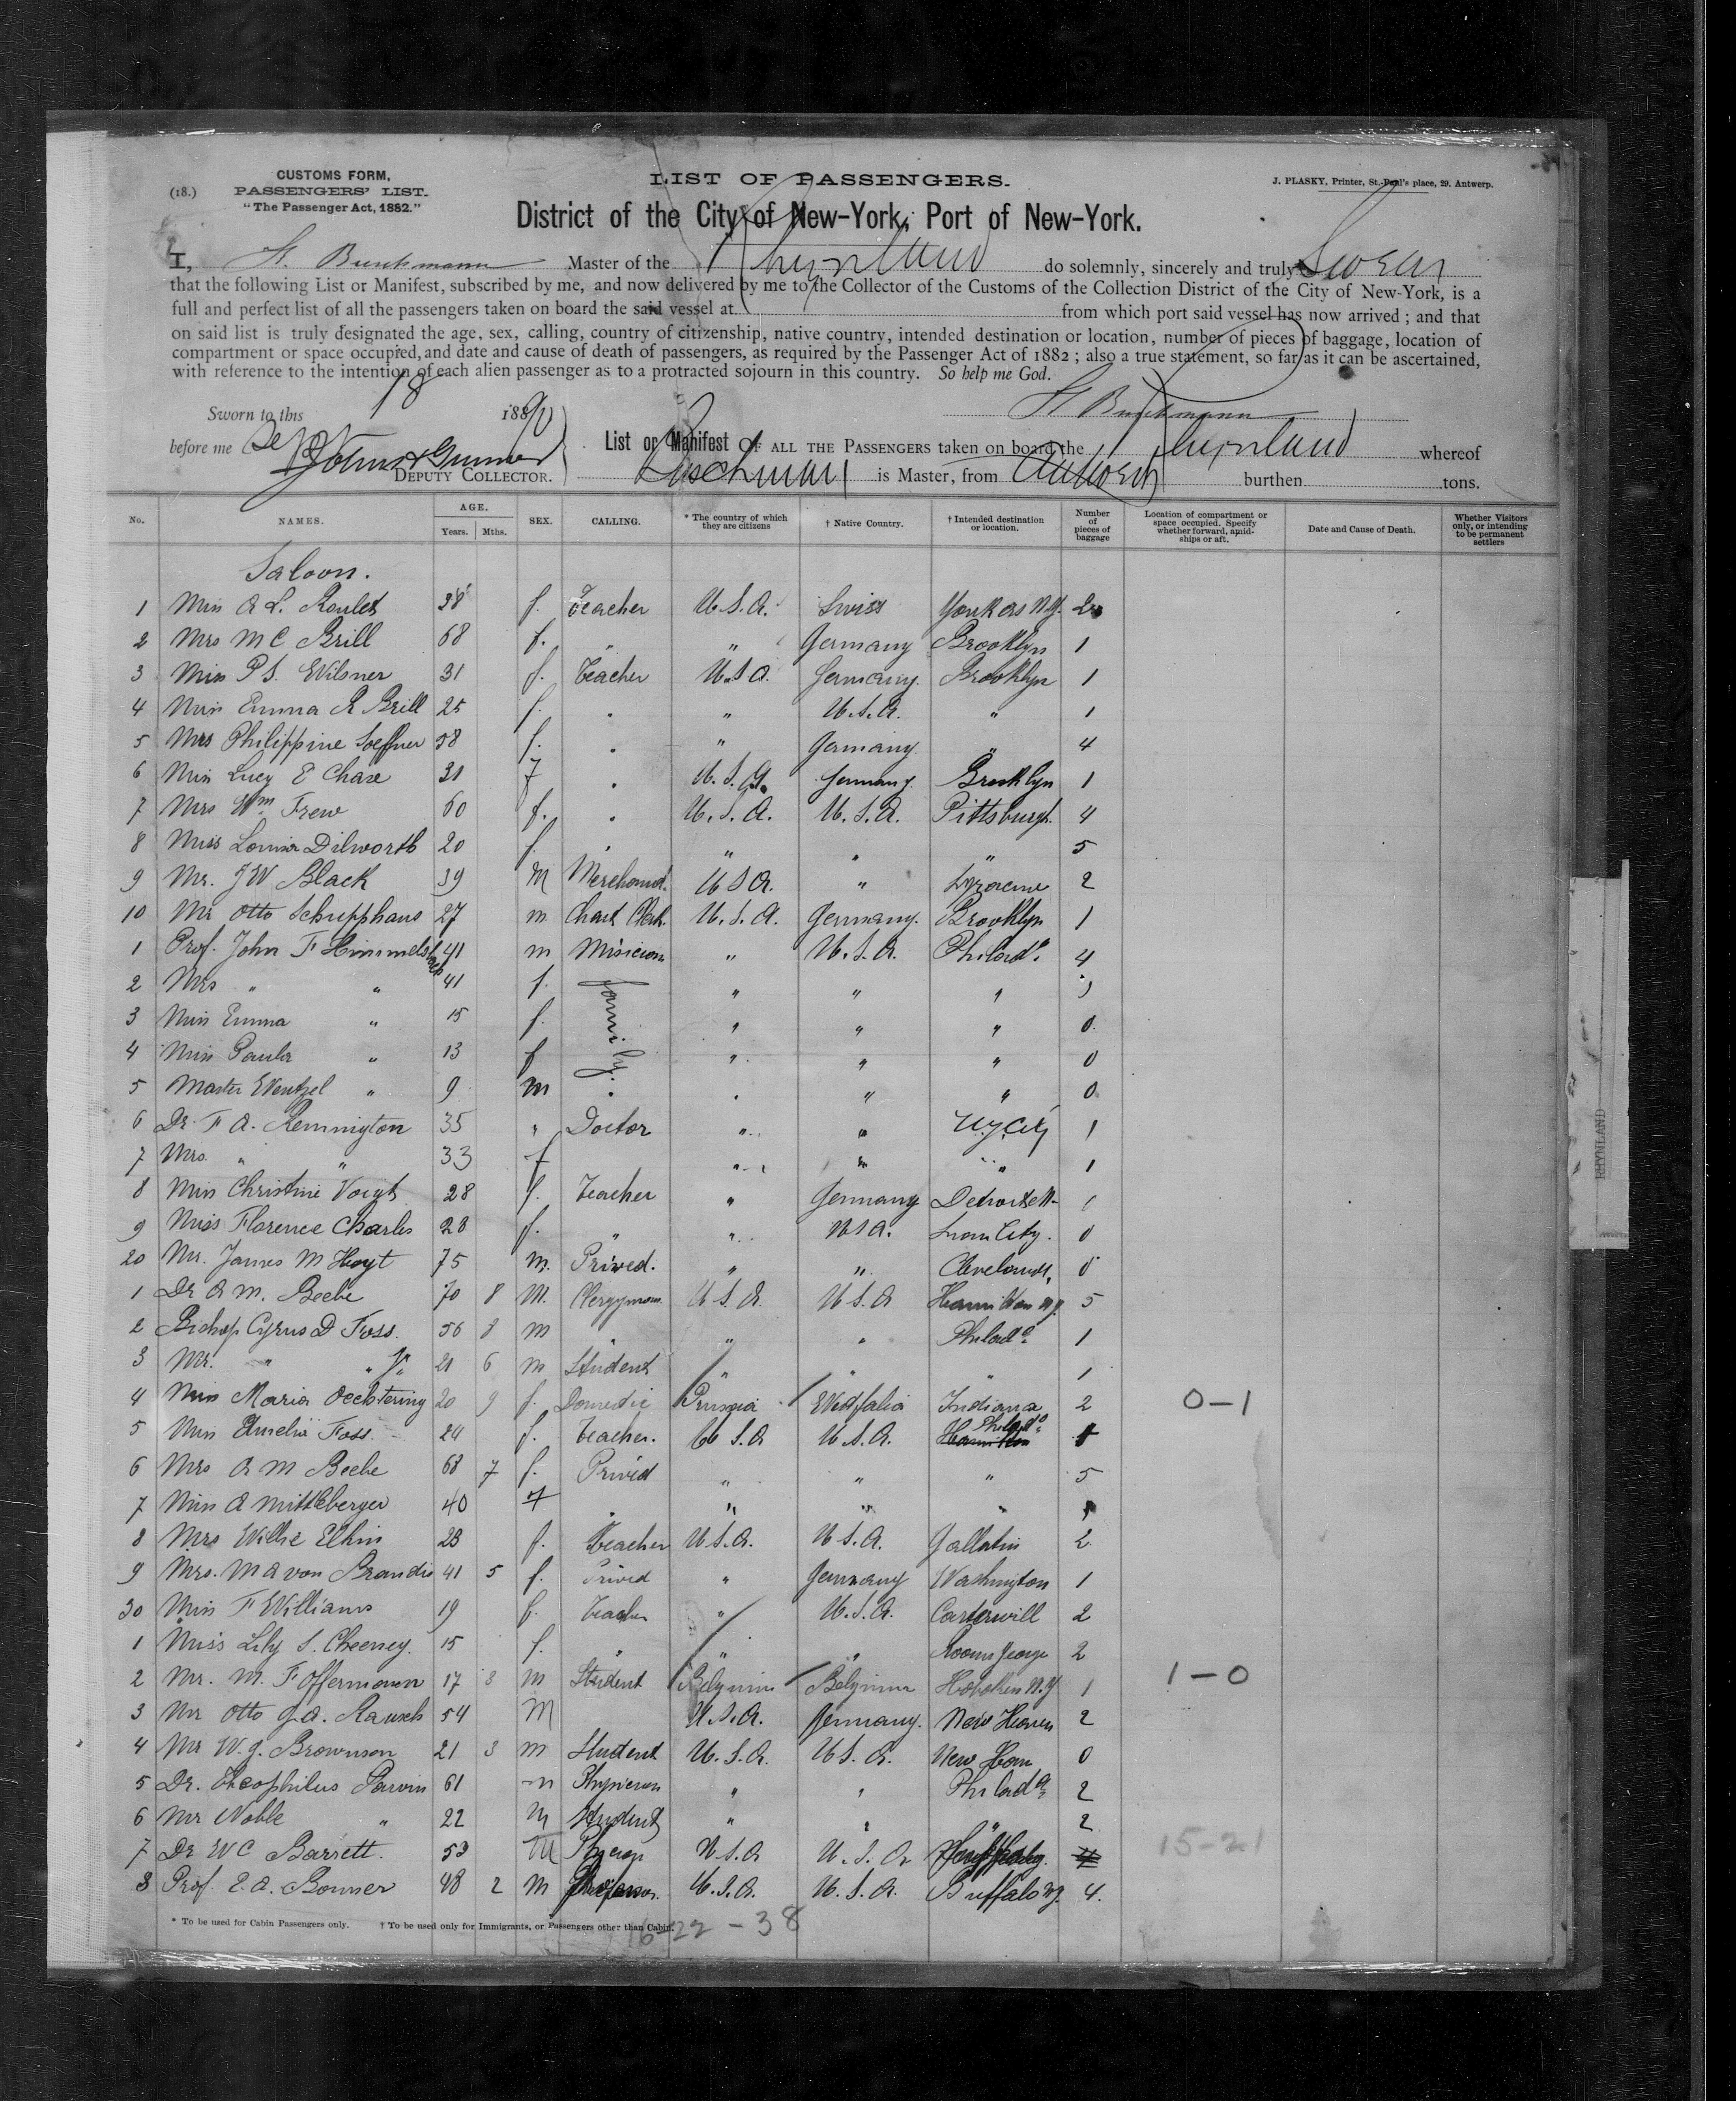 (18.)
CUSTOMS FORM,
PASSENGERS' LIST.
"The Passenger Act, 1882."
LIST OF PASSENGERS.
J. PLASKY, Printer, St.-Paul's place, 29. Antwerp.
District of the City of New-York, Port of New-York.
I, Master of the Rhynland do solemnly, sincerely and truly Swear
that the following List or Manifest, subscribed by me, and now delivered by me to the Collector of the Customs of the Collection District of the City of New-York, is a
full and perfect list of all the passengers taken on board the said vessel at from which port said vessel has now arrived ; and that
on said list is truly designated the age, sex, calling, country of citizenship, native country, intended destination or location, number of pieces of baggage, location of
compartment or space occupied, and date and cause of death of passengers, as required by the Passenger Act of 1882 ; also a true statement, so far as it can be ascertained,
with reference to the intention of each alien passenger as to a protracted sojourn in this country. So help me God.
Sworn to this 18 1890
before me Sept
DEPUTY COLLECTOR.
List or Manifest OF ALL THE PASSENGERS taken on board the Rhynland whereof
is Master, from Antwerp burthen tons.
No. NAMES. AGE. Years. Mths. SEX. CALLING. * The country of which they are citizens † Native Country. † Intended destination or location. Number of pieces of baggage Location of compartment or space occupied. Specify whether forward, amidships or aft. Date and Cause of Death. Whether Visitors only, or intending to be permanent settlers
Saloon.
1 Miss A L. Roulet 38 f. Teacher U.S.A. Swiss Yonkers N.Y. 2
2 Mrs M C Brill 68 f. " " Germany Brooklyn 1
3 Miss P S. Wilsner 31 f. Teacher U.S.A. Germany. Brooklyn 1
4 Miss Emma R Brill 25 f. " " U.S.A. " 1
5 Mrs Philippine Soeffner 58 f. " " Germany. " 4
6 Miss Lucy E Chase 31 f " U.S.A. Germany. Brooklyn 1
7 Mrs Wm Frew 60 f. " U.S.A. U.S.A. Pittsburgh. 4
8 Miss Louisa Dilworth 20 f. " " " " 5
9 Mr. J W Black 39 M Merchand. U S A. " Syracuse 2
10 Mr Otto Schupphaus 27 m Clerk. U.S.A. Germany. Brooklyn 1
1 Prof. John F Himmelsbach 41 m Musician " U.S.A. Philada. 4
2 Mrs " " 41 f. family. " " "
3 Miss Emma " 15 f. " " " 0.
4 Miss Paula " 13 f " " " 0
5 Master Wentzel " 9 m " " " " 0
6 Dr. F A. Remington 35 " Doctor " " N.Y. City 1
7 Mrs. " " 33 f " " " 1
8 Miss Christine Voigt 28 f. Teacher " Germany 1
9 Miss Florence Charles 28 f. " " U S A. 0
20 Mr. James M Hoyt 75 m. Prived. " " Cleveland, 0
1 Dr A M. Beebe 70 8 M. Clergyman U.S.A. U S.A Hamilton N.Y. 5
2 Bishop Cyrus D Foss. 56 8 m " " " Philada. 1
3 Mr. " " Jr. 21 6 m Student " " " 1
4 Miss Maria Oechtering 20 9 f. Domestic Prussia Westfalia Indiana 2 0-1
5 Miss Amelia Foss. 24 f. Teacher. U S.A U.S.A. Philada. 1
6 Mrs A M Beebe 68 7 f. Prived " " " 5
7 Miss A Mittleberger 40 f " " " "
8 Mrs Willie Elkin 23 f. Teacher U.S.A. U.S.A. Gallatin 2
9 Mrs. M A von Brandis 41 5 f. Prived " Germany Washington 1
30 Miss F Williams 19 f. Teacher " U.S.A. Carterwill 2
1 Miss Lily S. Cheeney. 15 f. " " " 2
2 Mr. M. F Offermann 17 3 m Student Belgium Belgium Hoboken N.Y 1 1-0
3 Mr Otto G.A. Rausch 54 M U.S.A. Germany. New Haven 2
4 Mr W.G. Brownson 21 3 m Student U.S.A. U S.A. New Hav 0
5 Dr. Theophilus Parvin 61 m Physician " " Philada. 2
6 Mr Noble " 22 M Student " " " 2
7 Dr W C Barrett. 53 M U.S.A U.S.A 4 15-21
8 Prof. E.A. Bonner 48 2 M Professor. U.S.A. U.S.A. Buffalo N.Y. 4.
* To be used for Cabin Passengers only. † To be used only for Immigrants, or Passengers other than Cabin.
22-38
RHYNLAND